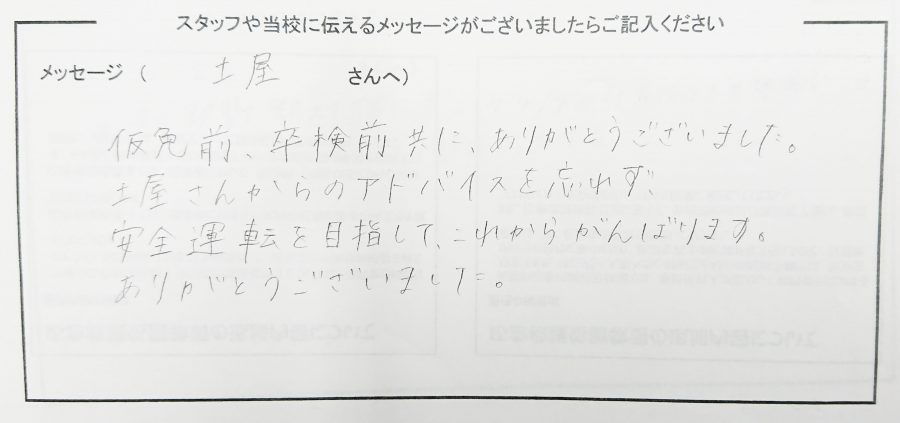 スタッフや当校に伝えるメッセージがございましたらご記入ください
メッセージ（　土屋　さんへ）
仮免前、卒検前共に、ありがとうございました。
土屋さんからのアドバイスを忘れず、
安全運転を目指して、これからがんばります。
ありがとうございました。